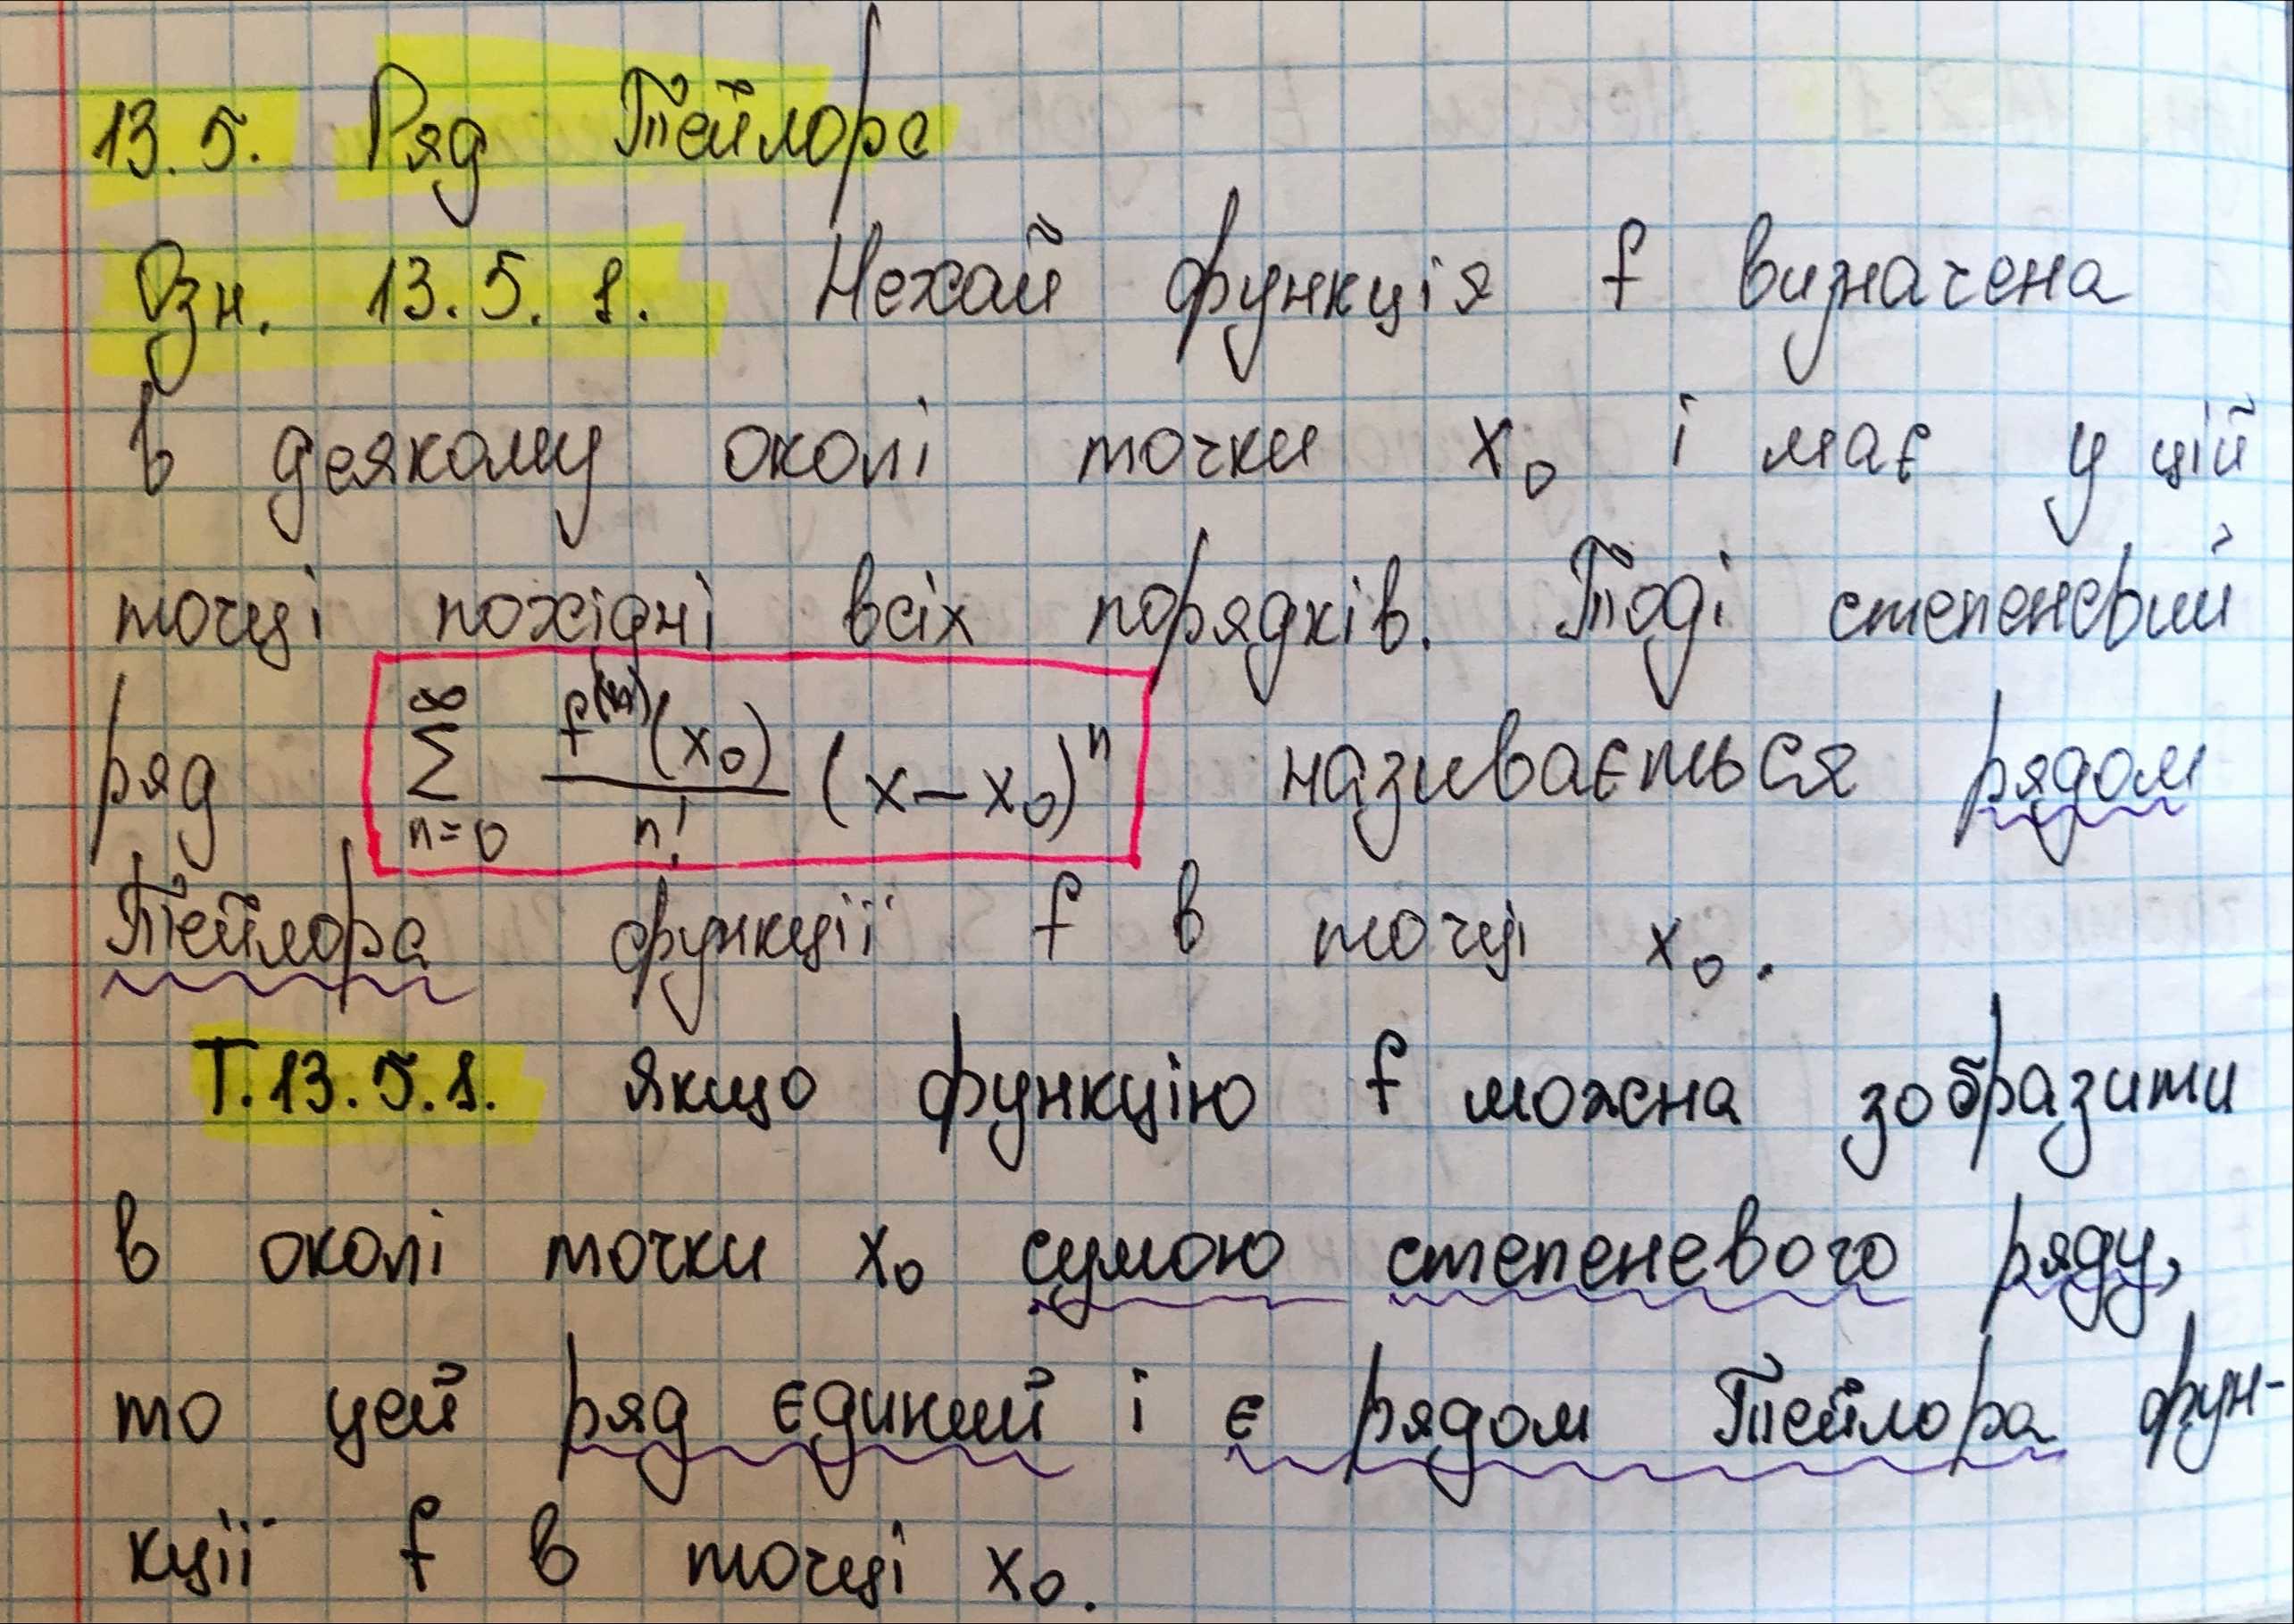 13.5. Ряд Тейлора
Озн. 13.5.1. Нехай функція f визначена
в деякому околі точки x₀ і має у цій
точці похідні всіх порядків. Тоді степеневий
ряд ∑_{n=0}^{∞} f⁽ⁿ⁾(x₀)/n! (x−x₀)ⁿ називається рядом
Тейлора функції f в точці x₀.
Т.13.5.1. Якщо функцію f можна зобразити
в околі точки x₀ сумою степеневого ряду,
то цей ряд єдиний і є рядом Тейлора фун-
кції f в точці x₀.